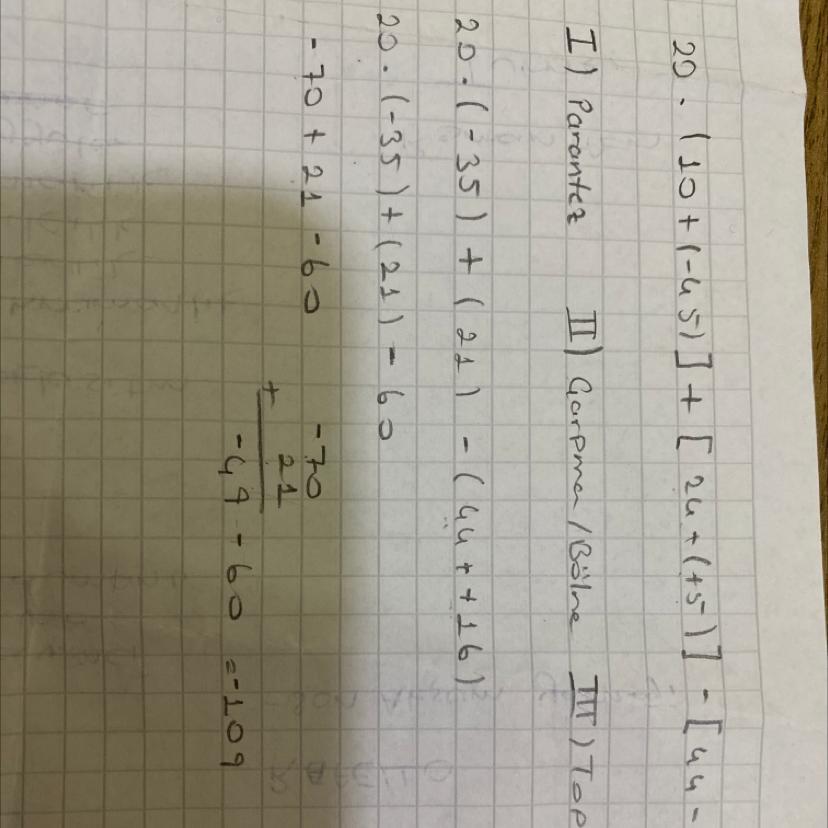 20 . (10 + (-45)] + [24 + (+5)] - [44 -
I) Parantez II) Çarpma / Bölme III) Top
20 . (-35) + (21) - (44 + +16)
20 . (-35) + (21) - 60
-70 + 21 - 60
-70
21
+
-49 - 60 = -109